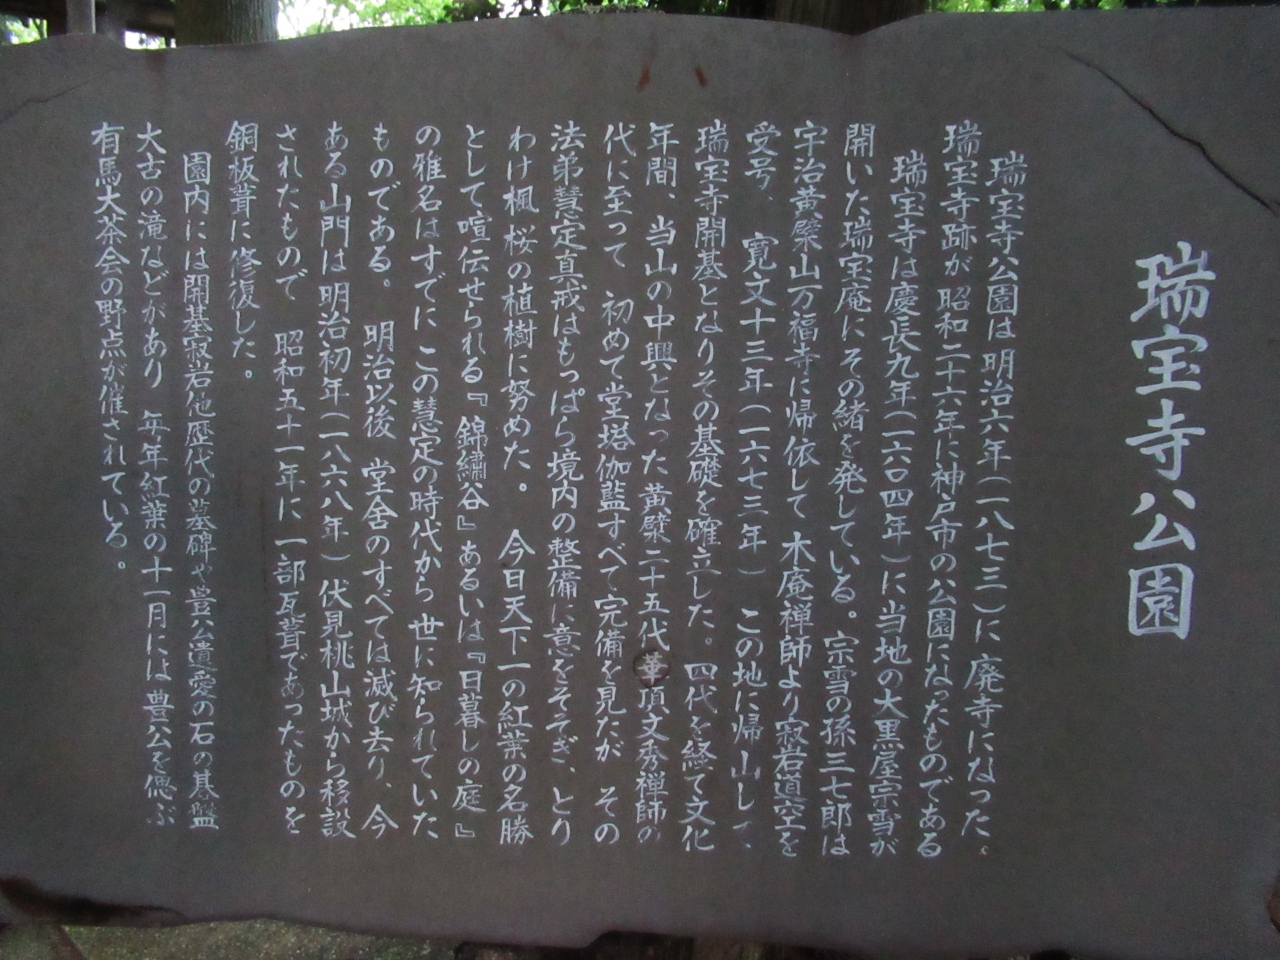 瑞宝寺公園
瑞宝寺公園は明治六年(一八七三)に廃寺になった。
瑞宝寺跡が 昭和二十六年に神戸市の公園になったものである
瑞宝寺は慶長九年(一六〇四年)に当地の大黒屋宗雪が
開いた瑞宝庵にその緒を発している。宗雪の孫三七郎は
宇治黄檗山万福寺に帰依して 木庵禅師より寂岩道空を
受号、 寛文十三年(一六七三年) この地に帰山して、
瑞宝寺開基となりその基礎を確立した。四代を経て文化
年間、当山の中興となった黄檗二十五代華頂文秀禅師の
代に至って 初めて堂塔伽藍すべて完備を見たが その
法弟慧定真戒はもっぱら境内の整備に意をそそぎ、とり
わけ楓、桜の植樹に努めた。 今日天下一の紅葉の名勝
として喧伝せられる『錦繡谷』あるいは『日暮しの庭』
の雅名はすでに この慧定の時代から 世に知られていた
ものである。 明治以後 堂舎のすべては滅び去り、今
ある山門は明治初年(一八六八年)伏見桃山城から移設
されたもので 昭和五十一年に 一部瓦葺であったものを
銅板葺に修復した。
園内には開基寂岩他歴代の墓碑や豊公遺愛の石の碁盤
大古の滝などがあり 毎年紅葉の十一月には 豊公を偲ぶ
有馬大茶会の野点が催されている。